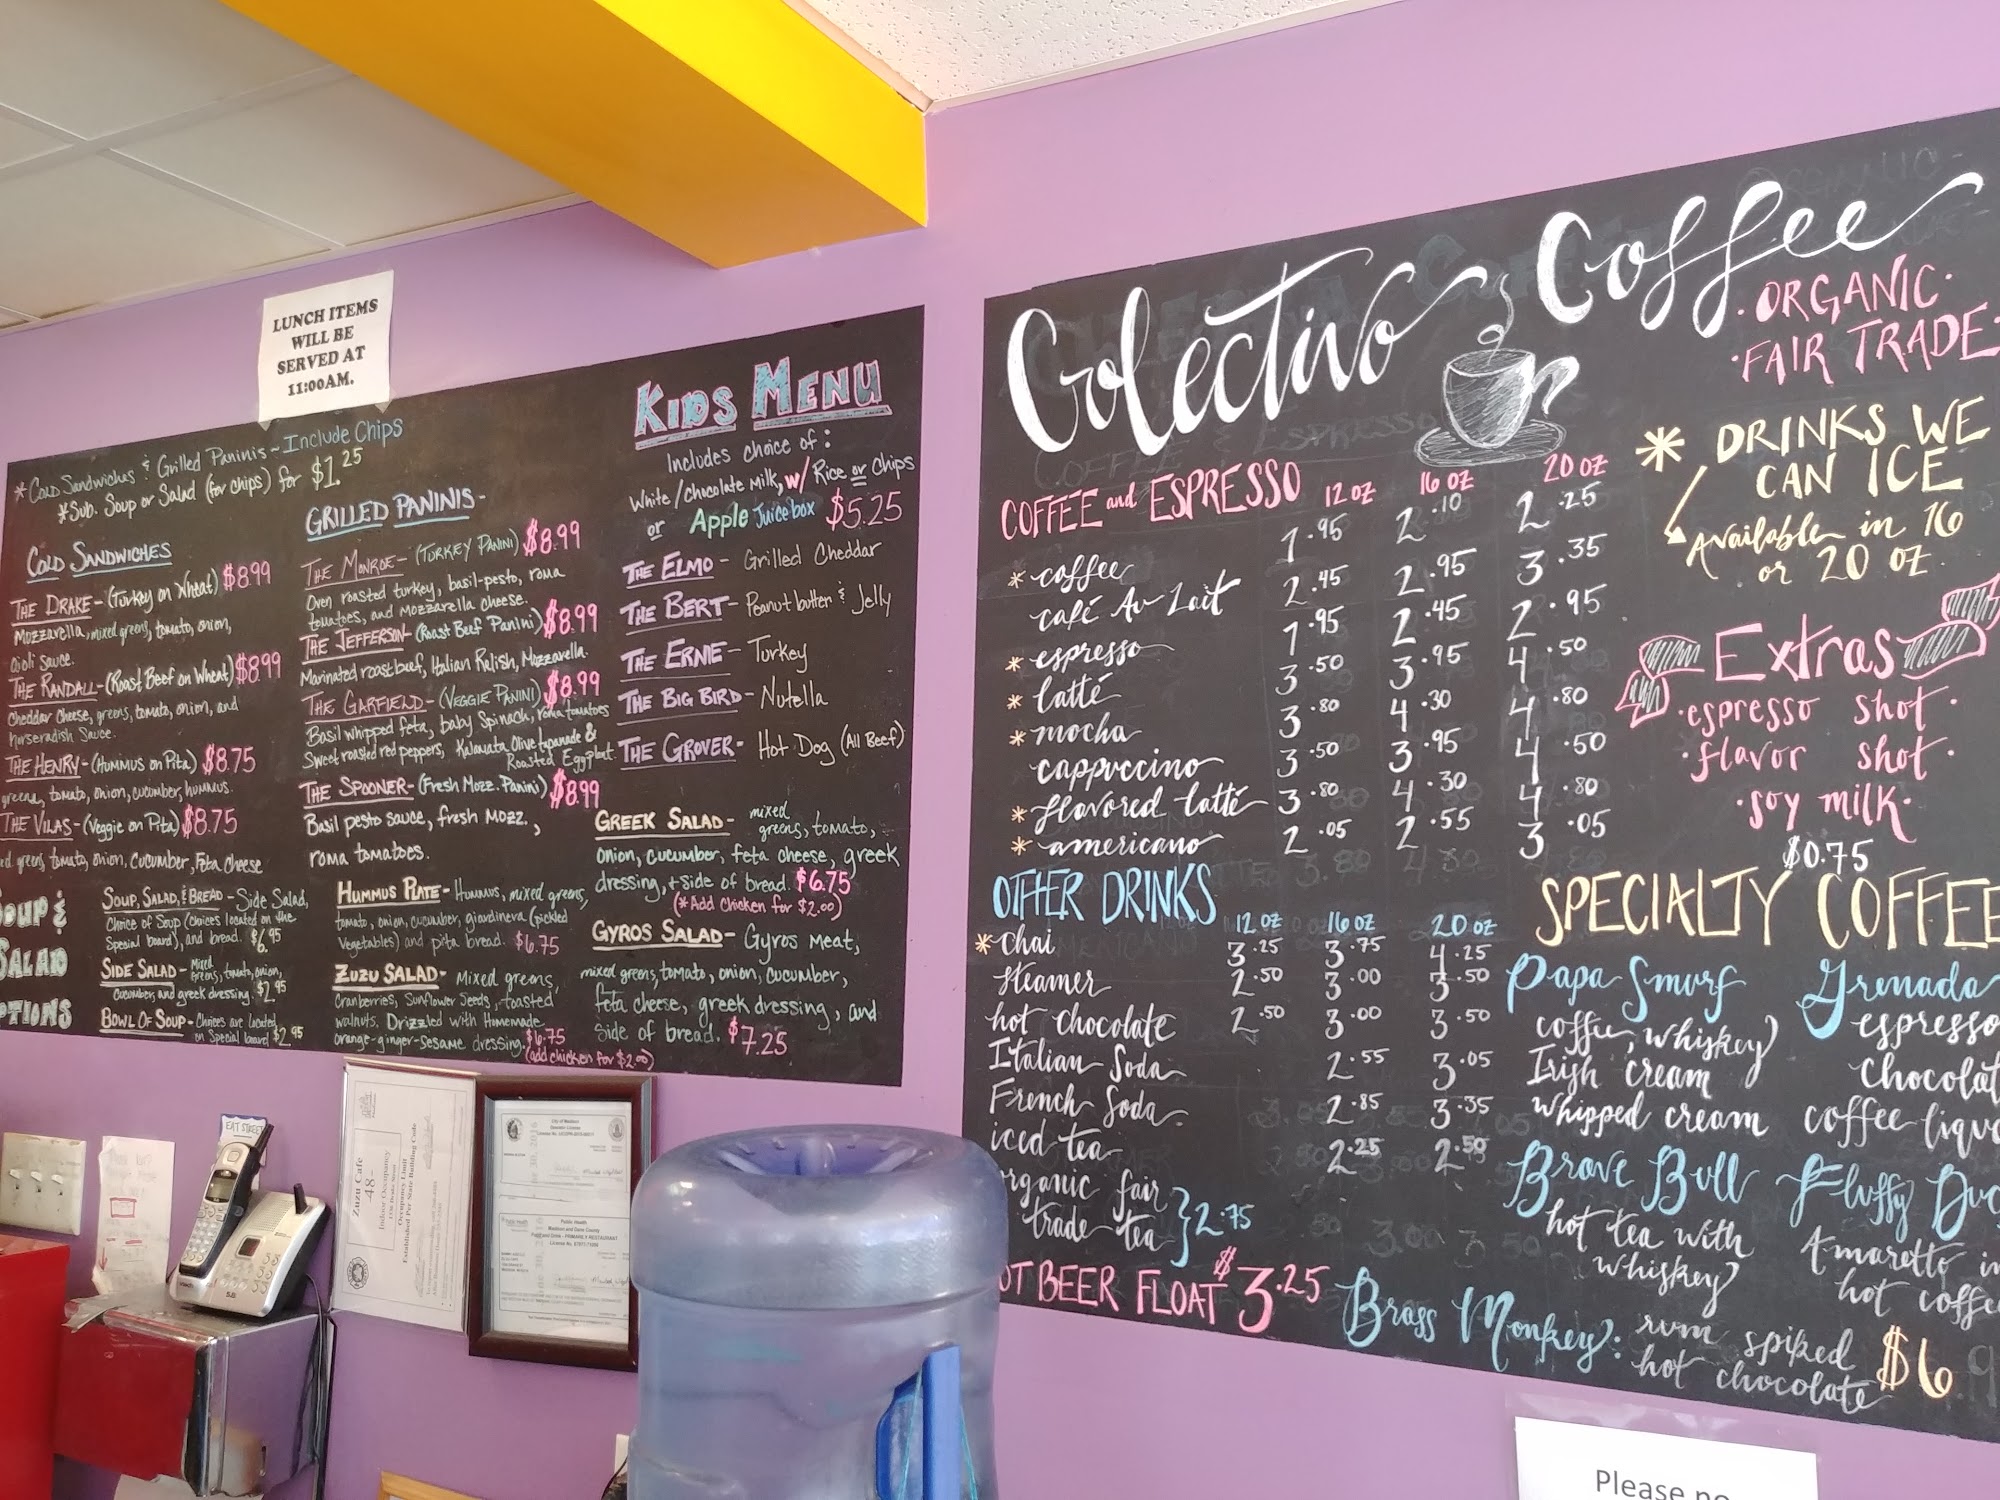 LUNCH ITEMS
WILL BE
SERVED AT
11:00AM.
*Cold Sandwiches & Grilled Paninis~Include Chips
*Sub. Soup or Salad (for chips) for $1.25
COLD SANDWICHES
THE DRAKE-(Turkey on Wheat) $8.99
Mozzarella, mixed greens, tomato, onion,
aioli sauce.
THE RANDALL-(Roast Beef on Wheat) $8.99
Cheddar cheese, greens, tomato, onion, and
horseradish sauce.
THE HENRY-(Hummus on Pita) $8.75
greens, tomato, onion, cucumber, hummus.
THE VILAS-(Veggie on Pita) $8.75
greens, tomato, onion, cucumber, Feta Cheese
GRILLED PANINIS-
THE MONROE-(TURKEY PANINI) $8.99
Oven roasted turkey, basil-pesto, roma
tomatoes, and mozzarella cheese.
THE JEFFERSON-(Roast Beef Panini) $8.99
Marinated roast beef, Italian Relish, Mozzarella.
THE GARFIELD-(VEGGIE PANINI) $8.99
Basil whipped feta, baby spinach, roma tomatoes
Sweet roasted red peppers, Kalamata Olive tapanade &
Roasted Eggplant.
THE SPOONER-(Fresh Mozz. Panini) $8.99
Basil pesto sauce, fresh mozz.,
roma tomatoes.
KIDS MENU
Includes choice of:
White/chocolate milk, w/ Rice or Chips
or Apple Juice box $5.25
THE ELMO- Grilled Cheddar
THE BERT- Peanut butter & Jelly
THE ERNIE- Turkey
THE BIG BIRD- Nutella
THE GROVER- Hot Dog (All Beef)
SOUP, SALAD, & BREAD- Side Salad,
Choice of Soup (Choices located on the
Special board), and bread. $6.95
SIDE SALAD- Mixed
greens, tomato, onion,
Cucumber, and greek dressing. $2.95
BOWL OF SOUP- Choices are located
on Special board $2.95
HUMMUS PLATE- Hummus, mixed greens,
tomato, onion, cucumber, giardinera (pickled
vegetables) and pita bread. $6.75
ZUZU SALAD- Mixed greens,
Cranberries, Sunflower Seeds, toasted
walnuts. Drizzled with Homemade
orange-ginger-sesame dressing. $6.75
(add chicken for $2.00)
GREEK SALAD- mixed
greens, tomato,
onion, cucumber, feta cheese, greek
dressing, + side of bread. $6.75
(*Add Chicken for $2.00)
GYROS SALAD- Gyros meat,
mixed greens, tomato, onion, cucumber,
feta cheese, greek dressing, and
side of bread. $7.25
Colectivo Coffee
·ORGANIC·
·FAIR TRADE·
COFFEE and ESPRESSO 12 oz 16 oz 20 oz
*coffee 1.95 2.10 2.25
café Au Lait 2.45 2.95 3.35
*espresso 1.95 2.45 2.95
*latté 3.50 3.95 4.50
*mocha 3.80 4.30 4.80
cappuccino 3.50 3.95 4.50
*flavored latté 3.80 4.30 4.80
*americano 2.05 2.55 3.05
* DRINKS WE
CAN ICE
Available in 16
or 20 oz.
Extras
·espresso shot·
·flavor shot·
·soy milk·
$0.75
OTHER DRINKS 12 oz 16 oz 20 oz
*chai 3.25 3.75 4.25
steamer 2.50 3.00 3.50
hot chocolate 2.50 3.00 3.50
Italian Soda 2.55 3.05
French Soda 2.85 3.35
iced tea 2.25 2.50
organic fair
trade tea } 2.75
BEER FLOAT $3.25
SPECIALTY COFFEE
Papa Smurf
coffee, whiskey
Irish cream
whipped cream
Grenada
espresso
chocolat
coffee liqu
Brave Bull
hot tea with
whiskey
Fluffy Duc
Amaretto in
hot coffee
Brass Monkey: rum spiked
hot chocolate
$6
EAT STREET
Zuzu Cafe
-48-
Indoor Occupancy
Occupancy Limit
Established Per State Building Code
City of Madison
Public Health
Madison and Dane County
Please no